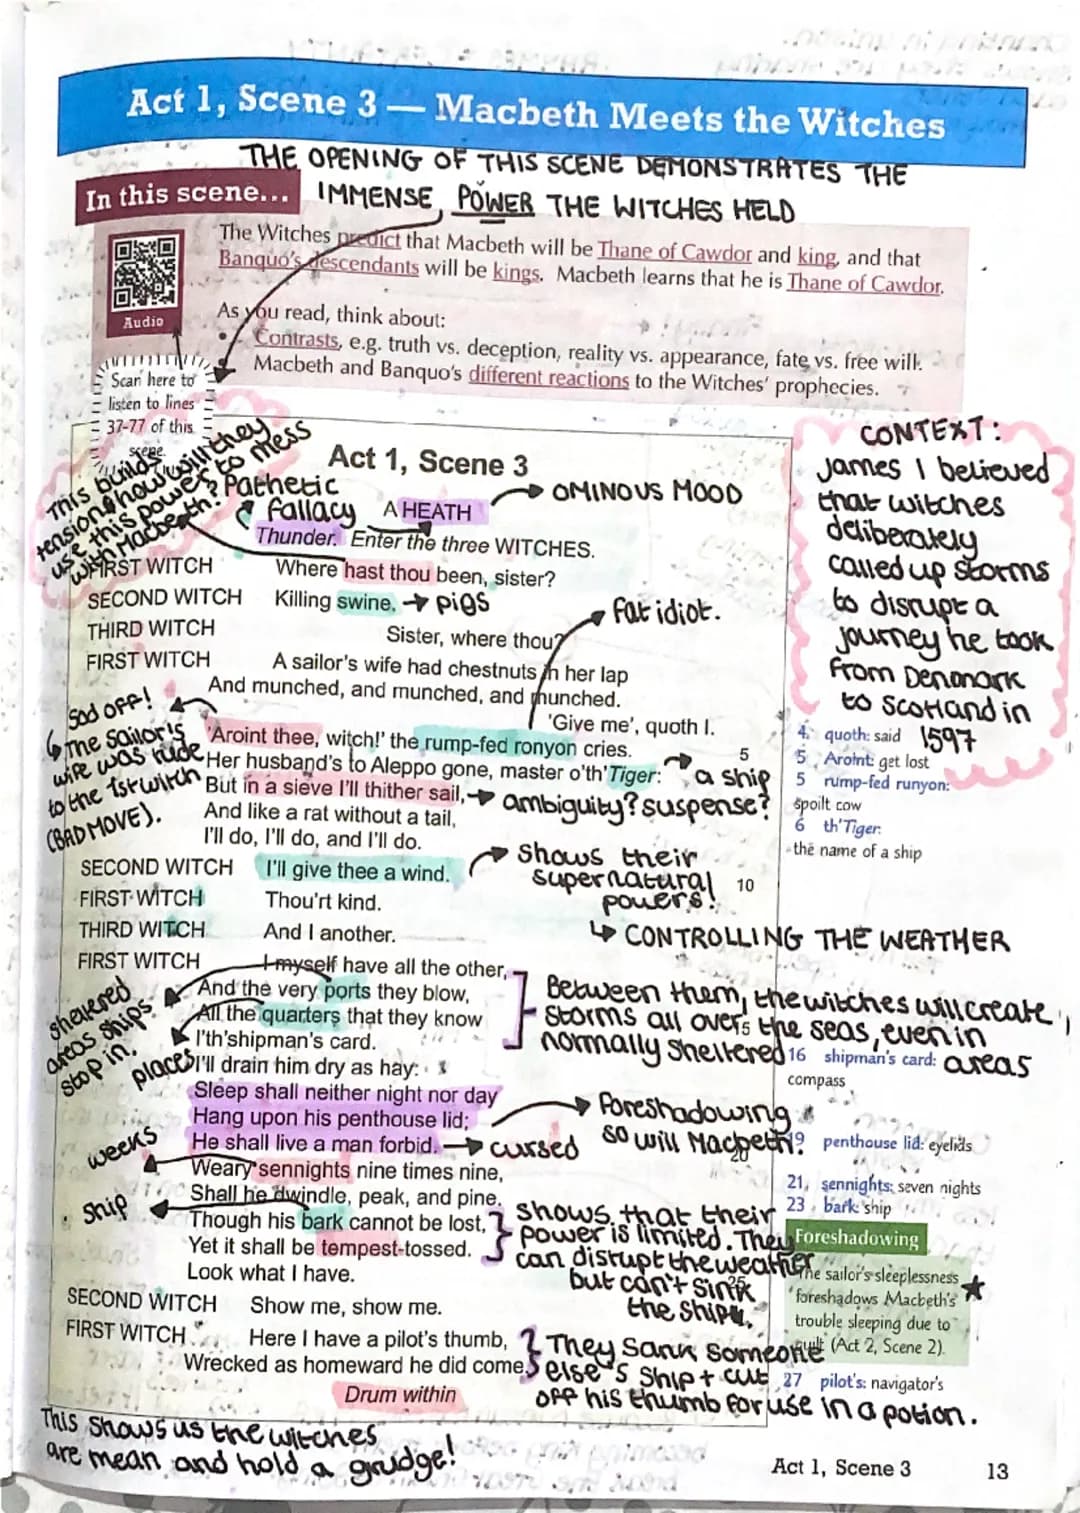 Act 1, Scene 3 — Macbeth Meets the Witches
THE OPENING OF THIS SCENE DEMONSTRATES THE
IMMENSE POWER THE WITCHES HELD
In this scene...
Audio
The Witches predict that Macbeth will be Thane of Cawdor and king, and that
Banquo's descendants will be kings. Macbeth learns that he is Thane of Cawdor.
As you read, think about:
• Contrasts, e.g. truth vs. deception, reality vs. appearance, fate vs. free will.
• Macbeth and Banquo's different reactions to the Witches' prophecies.
Scan here to
listen to lines
37-77 of this
scene.
This builds
tension, how will they
use this power to mess
with Macbeth?
Act 1, Scene 3
Pathetic
fallacy
A HEATH
OMINOUS MOOD
Thunder. Enter the three WITCHES.
FIRST WITCH Where hast thou been, sister?
SECOND WITCH Killing swine. → pigs
THIRD WITCH Sister, where thou?
fat idiot.
FIRST WITCH A sailor's wife had chestnuts in her lap
And munched, and munched, and munched.
'Give me', quoth I.
Sod off!
'Aroint thee, witch!' the rump-fed ronyon cries. 5
Her husband's to Aleppo gone, master o'th'Tiger: a ship
But in a sieve I'll thither sail, → ambiguity? suspense?
And like a rat without a tail,
I'll do, I'll do, and I'll do.
The sailor's
wife was rude
to the 1st witch
(BAD MOVE).
SECOND WITCH I'll give thee a wind. 10
Shows their
supernatural
powers!
↳ CONTROLLING THE WEATHER
FIRST WITCH Thou'rt kind.
THIRD WITCH And I another.
FIRST WITCH I myself have all the other,
And the very ports they blow,
All the quarters that they know
I'th'shipman's card.
I'll drain him dry as hay:
sheltered
areas ships
stop in.
places
Between them, the witches will create
storms all over the seas, even in
normally sheltered areas
Sleep shall neither night nor day
Hang upon his penthouse lid;
He shall live a man forbid. → cursed
Foreshadowing
so will Macbeth!
Weary sennights nine times nine, 20
weeks
Shall he dwindle, peak, and pine.
Though his bark cannot be lost,
ship
Yet it shall be tempest-tossed.
Look what I have.
shows that their
power is limited. They
can disrupt the weather
but can't sink
the ship.
SECOND WITCH Show me, show me.
FIRST WITCH Here I have a pilot's thumb,
Wrecked as homeward he did come.
They sank someone
else's ship + cut
off his thumb for use in a potion.
Drum within
This shows us the witches
are mean and hold a grudge!
CONTEXT:
James I believed
that witches
deliberately
called up storms
to disrupt a
journey he took
from Denmark
to Scotland in
1597
4 quoth: said
5 Aroint: get lost
5 rump-fed runyon:
spoilt cow
6 th'Tiger:
the name of a ship
16 shipman's card:
compass
19 penthouse lid: eyelids
21 sennights: seven nights
23 bark: ship
Foreshadowing
The sailor's sleeplessness
foreshadows Macbeth's
trouble sleeping due to
guilt (Act 2, Scene 2).
27 pilot's: navigator's
Act 1, Scene 3 13